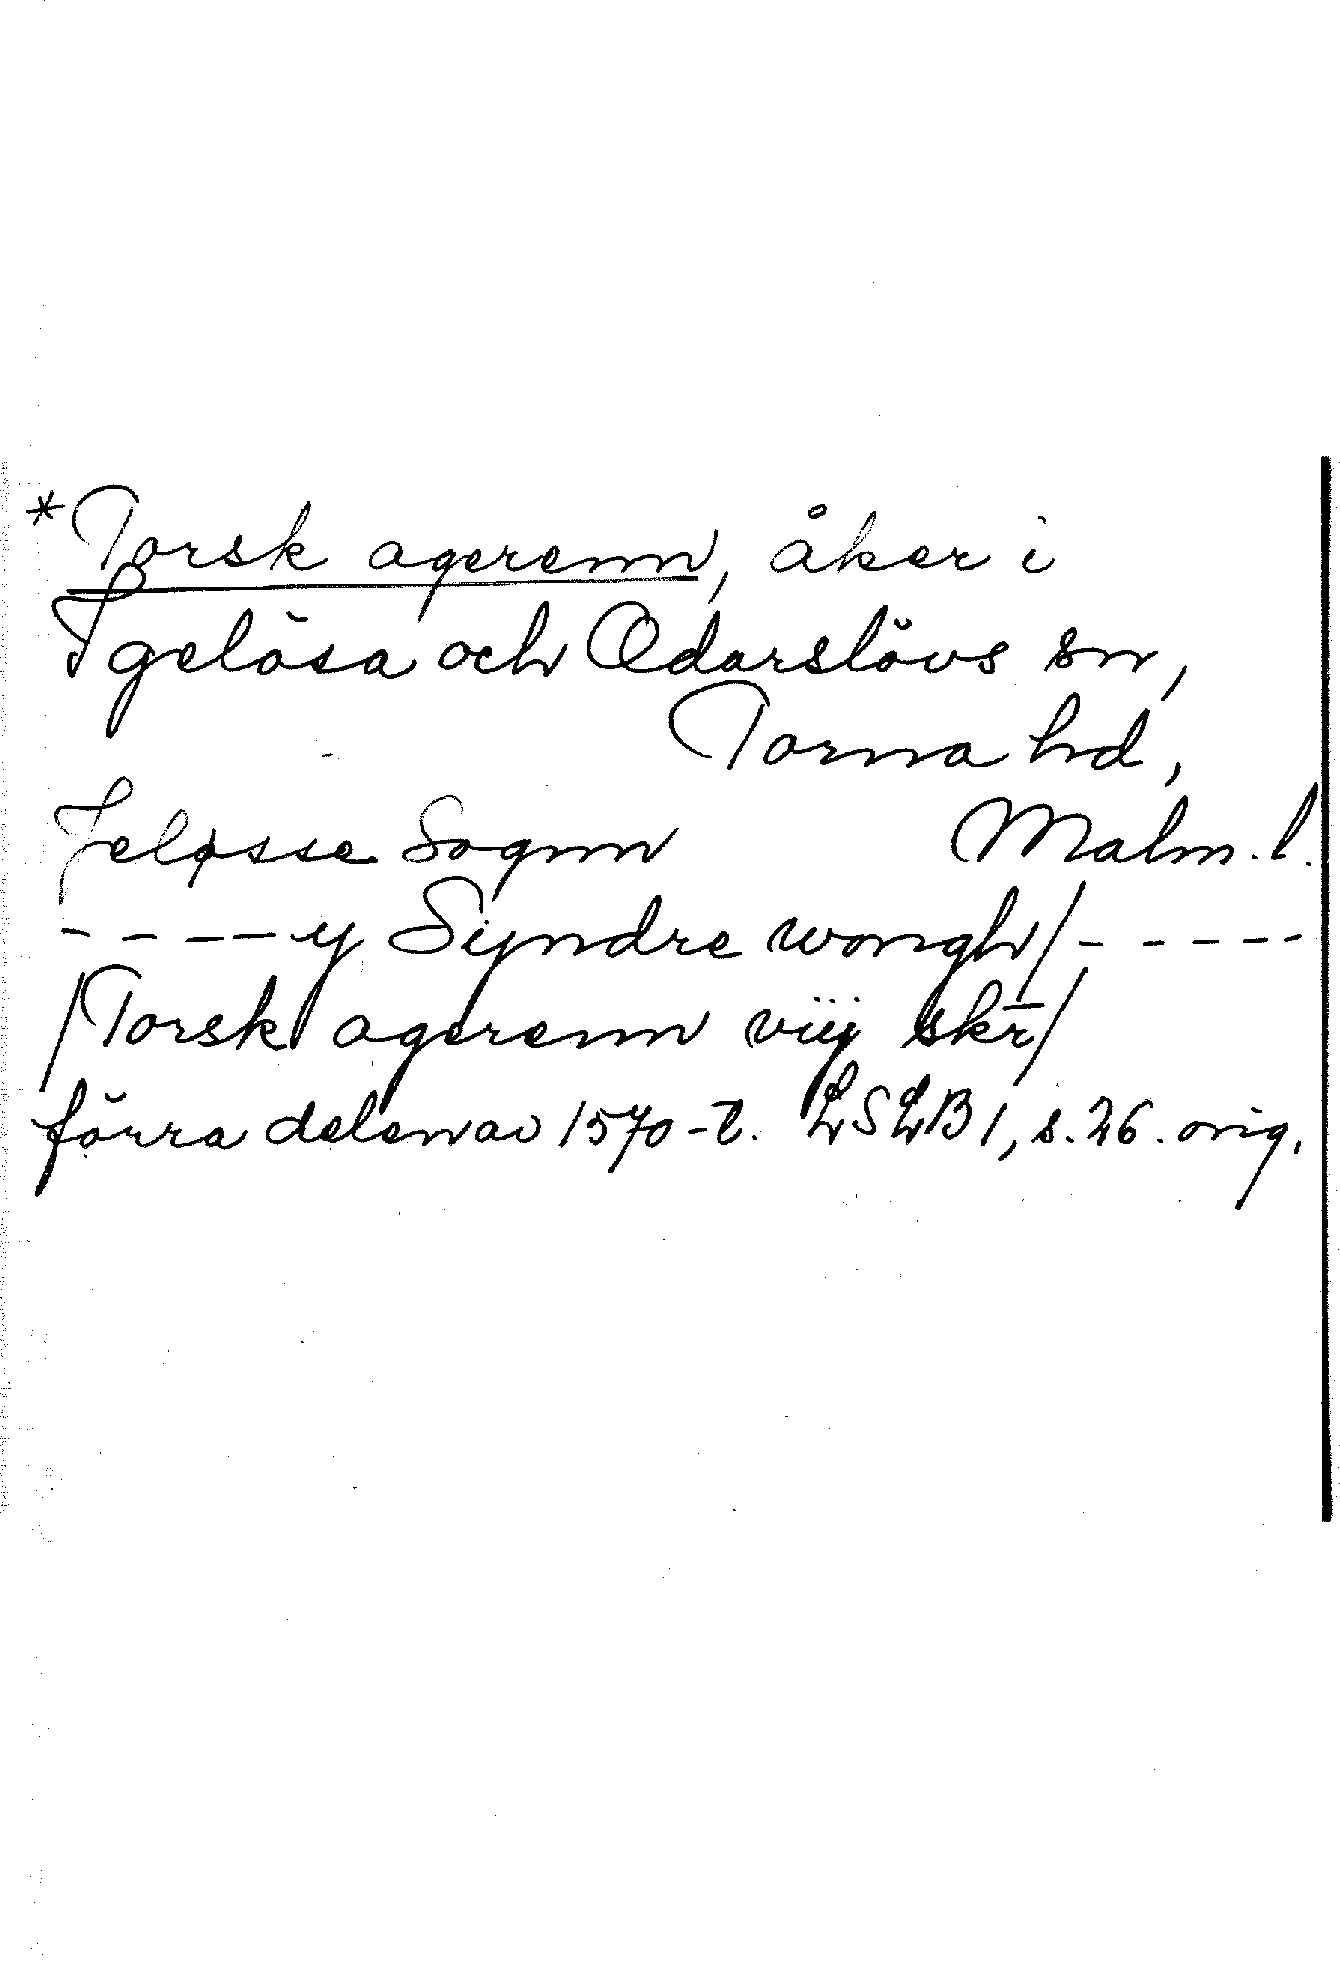 *Torsk agerenn, åker i
Igelösa och Odarslövs sn,
Torna hd,
Jeløsse Sognn Malm. l.
- - - - y Syndre wongh/ - - - - -
/Torsk agerenn viij skr̄/
förra delen av 1570-t. LSLB 1, s. 26. orig.